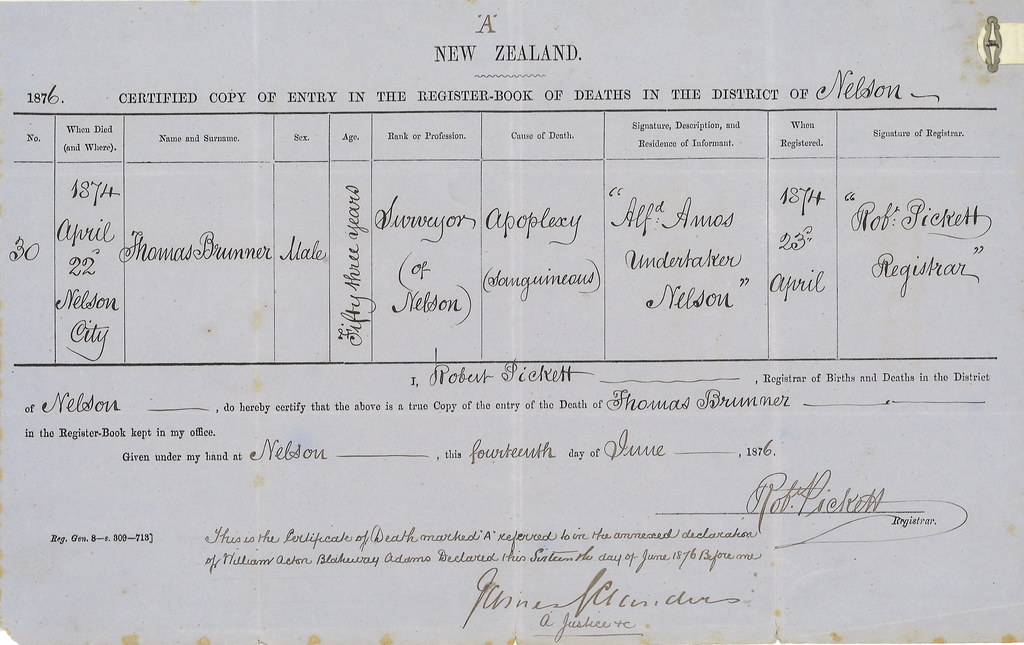 "A"
NEW ZEALAND.
1876. CERTIFIED COPY OF ENTRY IN THE REGISTER-BOOK OF DEATHS IN THE DISTRICT OF Nelson
No. When Died (and Where). Name and Surname. Sex. Age. Rank or Profession. Cause of Death. Signature, Description, and Residence of Informant. When Registered. Signature of Registrar.
30
1874
April
22d
Nelson
City
Thomas Brunner
Male
Fifty three years
Surveyor
(of
Nelson)
Apoplexy
(Sanguineous)
"Alfd. Amos
Undertaker
Nelson"
1874
23d
April
"Robt. Pickett
Registrar"
I, Robert Pickett, Registrar of Births and Deaths in the District
of Nelson, do hereby certify that the above is a true Copy of the entry of the Death of Thomas Brunner
in the Register-Book kept in my office.
Given under my hand at Nelson, this fourteenth day of June, 1876.
Robt. Pickett
Registrar.
Reg. Gen. 8—s. 309—713]
This is the Certificate of Death marked "A" referred to in the annexed declaration
of William Acton Blakeway Adams Declared this Sixteenth day of June 1876 Before me
A Justice &c